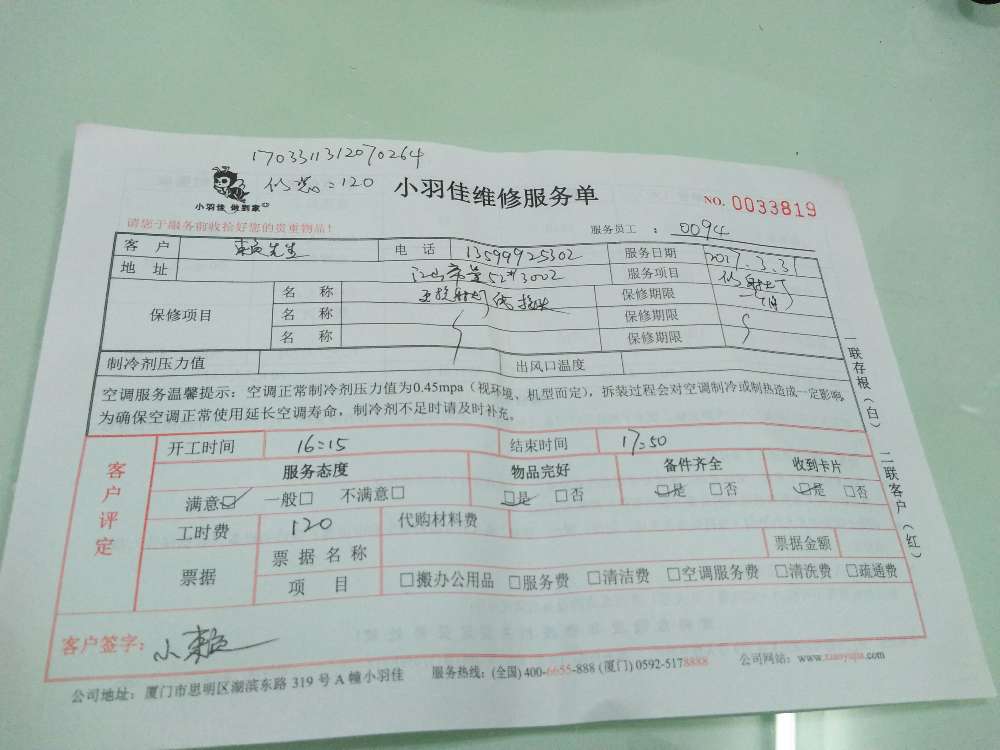 1703311312070264
=120
小羽佳 做到家
小羽佳维修服务单
NO. 0033819
请您于服务前收拾好您的贵重物品!
服务员工 : 0094
客 户 赖先生 电 话 13599925302 服务日期 2017.3.31
地 址 52#3002 服务项目
保修项目 名 称 保修期限
名 称 保修期限
名 称 保修期限
制冷剂压力值 出风口温度
空调服务温馨提示:空调正常制冷剂压力值为0.45mpa(视环境、机型而定),拆装过程会对空调制冷或制热造成一定影响,
为确保空调正常使用延长空调寿命,制冷剂不足时请及时补充。
客户评定
开工时间 16:15 结束时间 17:50
服务态度 物品完好 备件齐全 收到卡片
满意☑ 一般□ 不满意□ ☑是 □否 ☑是 □否 ☑是 □否
工时费 120 代购材料费
票据 票据名称 票据金额
项 目 □搬办公用品 □服务费 □清洁费 □空调服务费 □清洗费 □疏通费
客户签字: 小赖
公司地址:厦门市思明区湖滨东路 319 号 A 幢小羽佳 服务热线:(全国) 400-6655-888 (厦门) 0592-5178888 公司网站:www.xiaoyujia.com
一联存根(白) 二联客户(红)